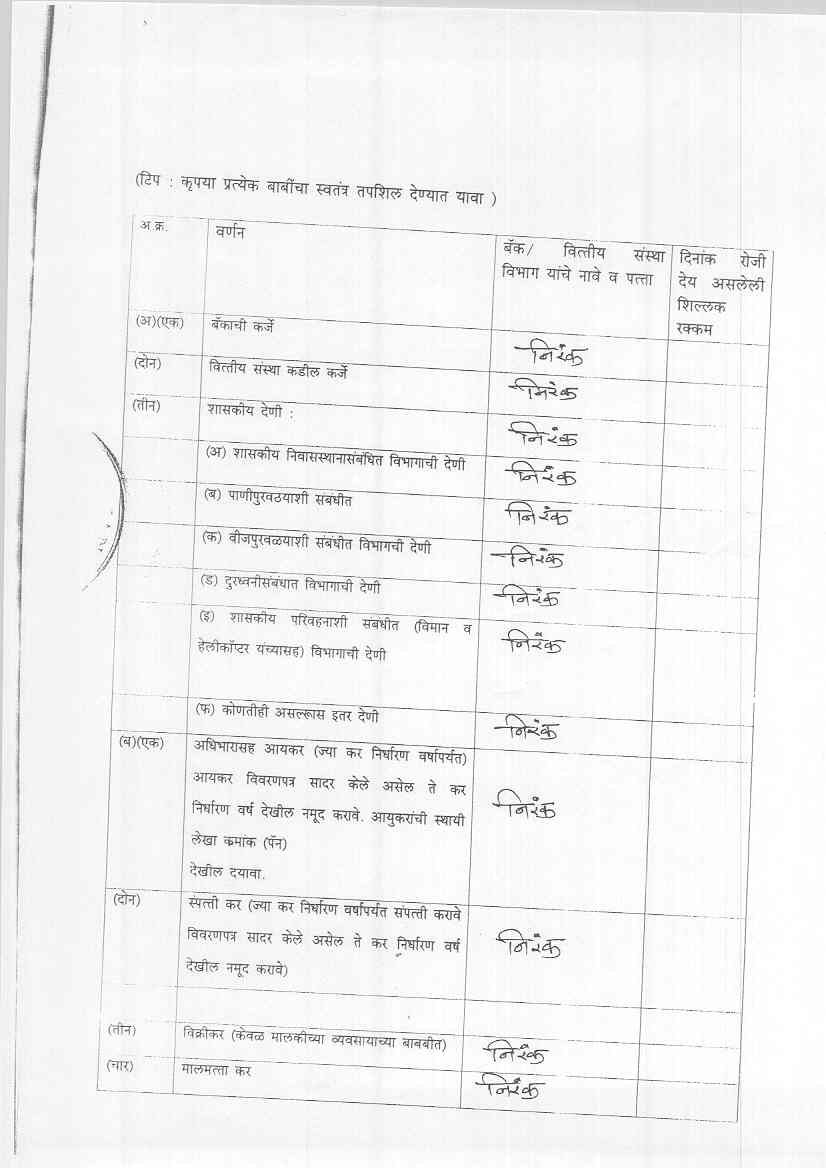 (टिप : कृपया प्रत्येक बाबींचा स्वतंत्र तपशिल देण्यात यावा )
अ.क्र. वर्णन बॅंक/ वित्तीय संस्था विभाग यांचे नावे व पत्ता दिनांक रोजी देय असलेली शिल्लक रक्कम
(अ)(एक) बॅंकाची कर्जे निरंक
(दोन) वित्तीय संस्था कडील कर्जे निरंक
(तीन) शासकीय देणी : निरंक
(अ) शासकीय निवासस्थानासंबंधित विभागाची देणी निरंक
(ब) पाणीपुरवठयाशी संबंधीत निरंक
(क) वीजपुरवळयाशी संबंधीत विभागची देणी निरंक
(ड) दुरध्वनीसंबंधात विभागाची देणी निरंक
(इ) शासकीय परिवहनाशी संबंधीत (विमान व निरंक
हेलीकॉप्टर यंच्यासह) विभागाची देणी
(फ) कोणतीही असल्यास इतर देणी निरंक
(ब)(एक) अधिभारासह आयकर (ज्या कर निर्धारण वर्षापर्यत)
आयकर विवरणपत्र सादर केले असेल ते कर
निर्धारण वर्ष देखील नमूद करावे. आयुकरांची स्थायी निरंक
लेखा क्रमांक (पॅन)
देखील दयावा.
(दोन) संपत्ती कर (ज्या कर निर्धारण वर्षापर्यत संपत्ती करावे
विवरणपत्र सादर केले असेल ते कर निर्धारण वर्ष निरंक
देखील नमूद करावे)
(तीन) विक्रीकर (केवळ मालकीच्या व्यवसायाच्या बाबबीत) निरंक
(चार) मालमत्ता कर निरंक